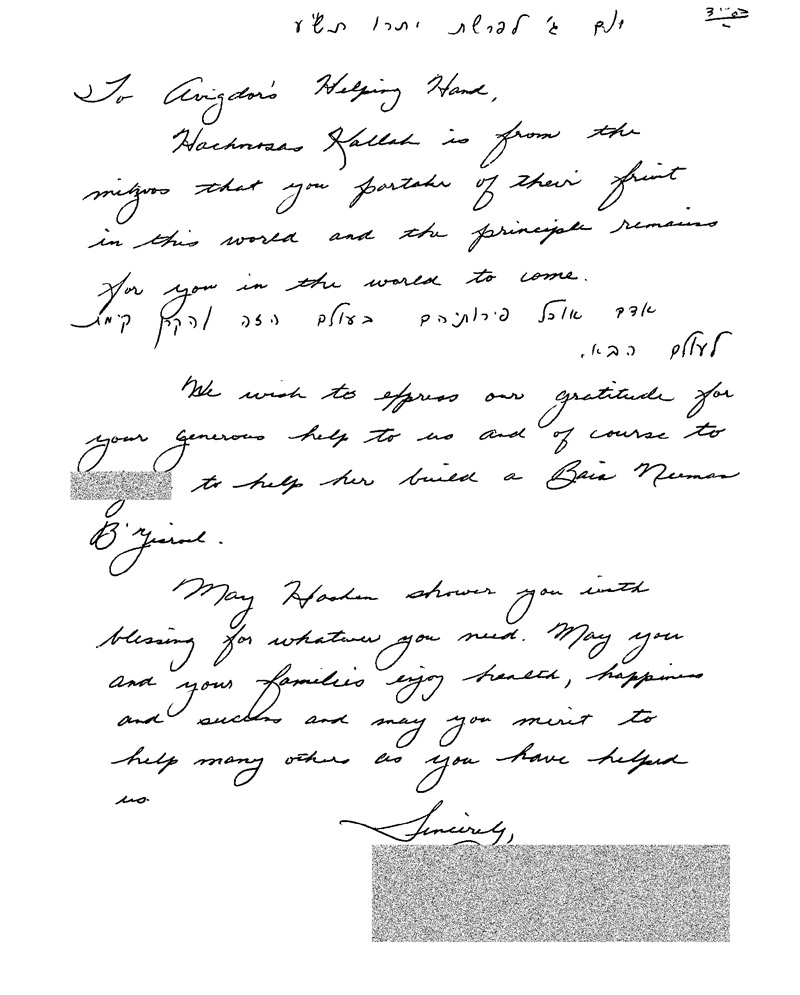 בס״ד
יום ג' לפרשת יתרו תש"ע
To Avigdor's Helping Hand,
Hachnosas Kallah is from the
mitzvos that you partake of their friut
in this world and the principle remains
for you in the world to come.
אדם אוכל פירותיהם בעולם הזה והקרן קימת
לעולם הבא.
We wish to express our gratitude for
your generous help to us and of course to
to help her build a Bais Neeman
B'Yisroel.
May Hashem shower you with
blessing for whatever you need. May you
and your families enjoy health, happiness
and success and may you merit to
help many others as you have helped
us.
Sincerely,